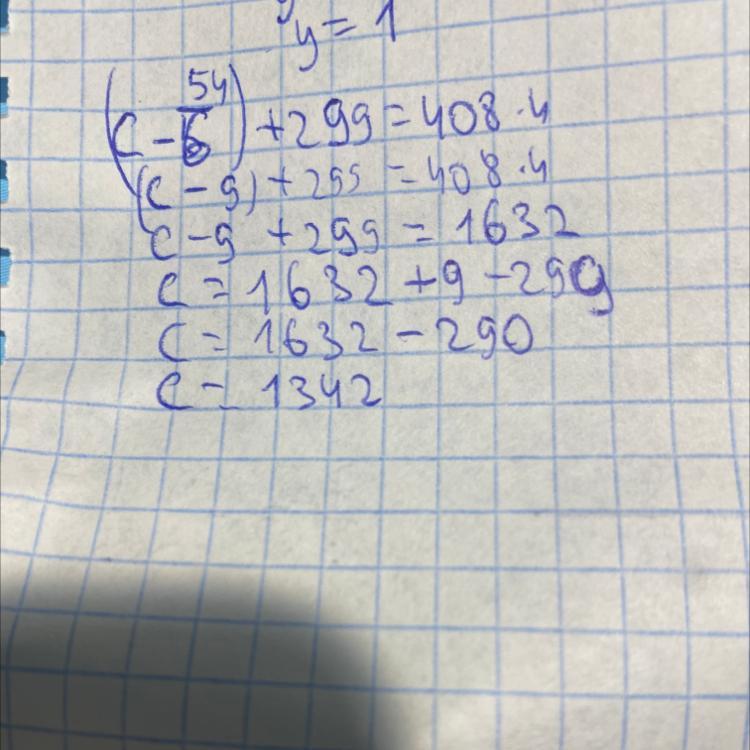 y = 1
(c - 54/6) + 299 = 408 · 4
(c - 9) + 299 = 408 · 4
c - 9 + 299 = 1632
c = 1632 + 9 - 299
c = 1632 - 290
c = 1342